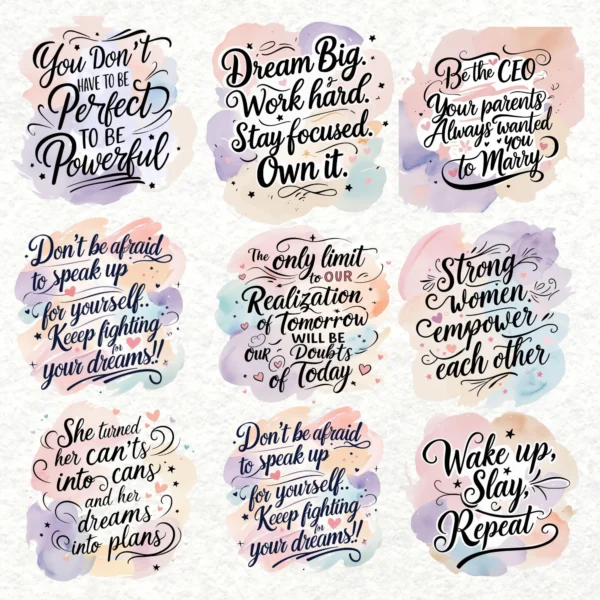 You Don't
HAVE TO BE
Perfect
TO BE
Powerful
Dream Big.
Work hard.
Stay focused.
Own it.
Be the CEO
Your parents
Always wanted
you
to Marry
Don't be afraid
to speak up
for yourself..
Keep fighting
for
your dreams!!
The only limit
to OUR
Realization
of Tomorrow
WILL BE
OUR Doubts
of Today
Strong
women.
empower
each other
She turned
her can'ts
into cans
and her
dreams
into plans
Don't be afraid
to speak up
for yourself..
Keep fighting
for
your dreams!!
Wake up,
Slay,
Repeat